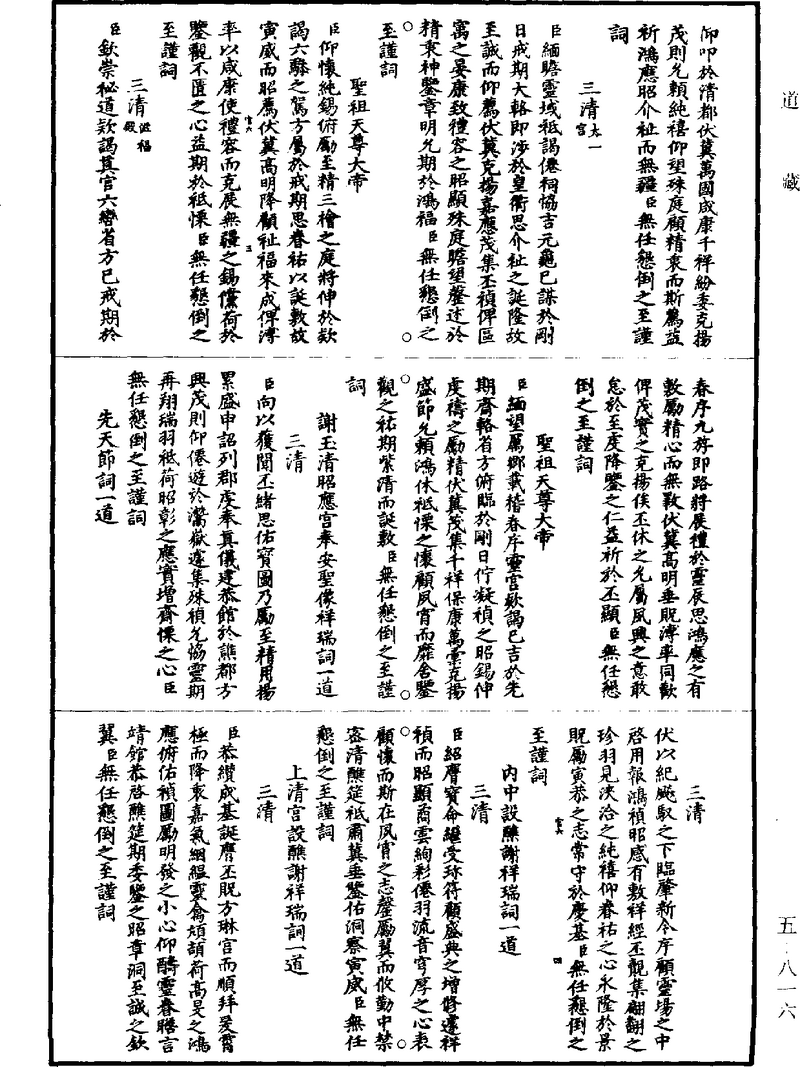 道藏
仰叩於清都伏冀萬國咸康千祥紛委克揚
茂則允賴純禧仰望殊庭顧精衷而斯薦益
祈鴻應昭介祉而無疆臣無任懇倒之至謹
詞
三清太一宮
臣緬瞻靈域祗謁僊祠協吉元龜已諏於剛
日戒期大輅即涉於皇衢思介祉之誕隆故
至誠而仰薦伏冀克揚嘉應茂集丕禎俾區
寓之晏康致禮容之昭顯殊庭瞻望罄述於
精衷神鑒章明允期於鴻福臣無任懇倒之
至謹詞
聖祖天尊大帝
臣仰懷純錫俯勵至精三檜之庭將伸於款
謁六騑之駕方屬於戒期思眷祐以誕敷故
寅威而昭薦伏冀高明降顧祉福來成俾溥
率以咸康使禮容而克展無疆之錫儻荷於
鑒觀不匱之心益期於祗慄臣無任懇倒之
至謹詞
三清洪福殿
臣欽崇祕道款謁真宮六轡省方已戒期於
春序九斿即路將展禮於靈辰思鴻應之有
敷勵精心而無斁伏冀高明垂貺溥率同歡
俾茂實之克揚俟丕休之允屬夙興之意敢
怠於至虔降鑒之仁益祈於丕顯臣無任懇
倒之至謹詞
聖祖天尊大帝
臣緬望厲鄉載稽春序靈宮款謁已吉於先
期齋輅省方俯臨於剛日佇凝禎之昭錫伸
虔禱之勵精伏冀茂集千祥保康萬彙克揚
盛節允賴鴻休祗慄之懷顧夙宵而靡舍鑒
觀之祐期紫清而誕敷臣無任懇倒之至謹
詞
謝玉清昭應宮奉安聖像祥瑞詞一道
三清
臣向以獲聞丕緒思佑寶圖乃勵至精用揚
累盛申詔列郡虔奉真儀建恭館於譙都方
興茂則仰僊遊於灊嶽遽集殊禎允協靈期
再翔瑞羽祗荷昭彰之應實增齋慄之心臣
無任懇倒之至謹詞
先天節詞一道
三清
伏以紀飈馭之下臨肇新令序顧靈場之中
啓用報鴻禎昭感有數祥經丕覿集翩翻之
珍羽見浹洽之純禧仰眷祐之心永隆於景
貺屬寅恭之志常守於慶基臣無任懇倒之
至謹詞
內中設醮謝祥瑞詞一道
三清
臣紹膺寶命纘受珍符顧盛典之增修遽祥
禎而昭顯矞雲絢彩僊羽流音穹厚之心表
顧懷而斯在夙宵之志罄勵翼而攸勤中禁
宓清醮筵祗肅冀垂鑒佑洞察寅威臣無任
懇倒之至謹詞
上清宮設醮謝祥瑞詞一道
三清
臣恭纘成基誕膺丕貺方琳宮而順拜爰霄
極而降衷嘉氣絪緼靈禽頏頡荷高旻之鴻
應俯佑禎圖勵明發之小心仰醻靈眷睠言
靖館恭啓醮筵期委鑒之昭章洞至誠之欽
冀臣無任懇倒之至謹詞
五‧八一六